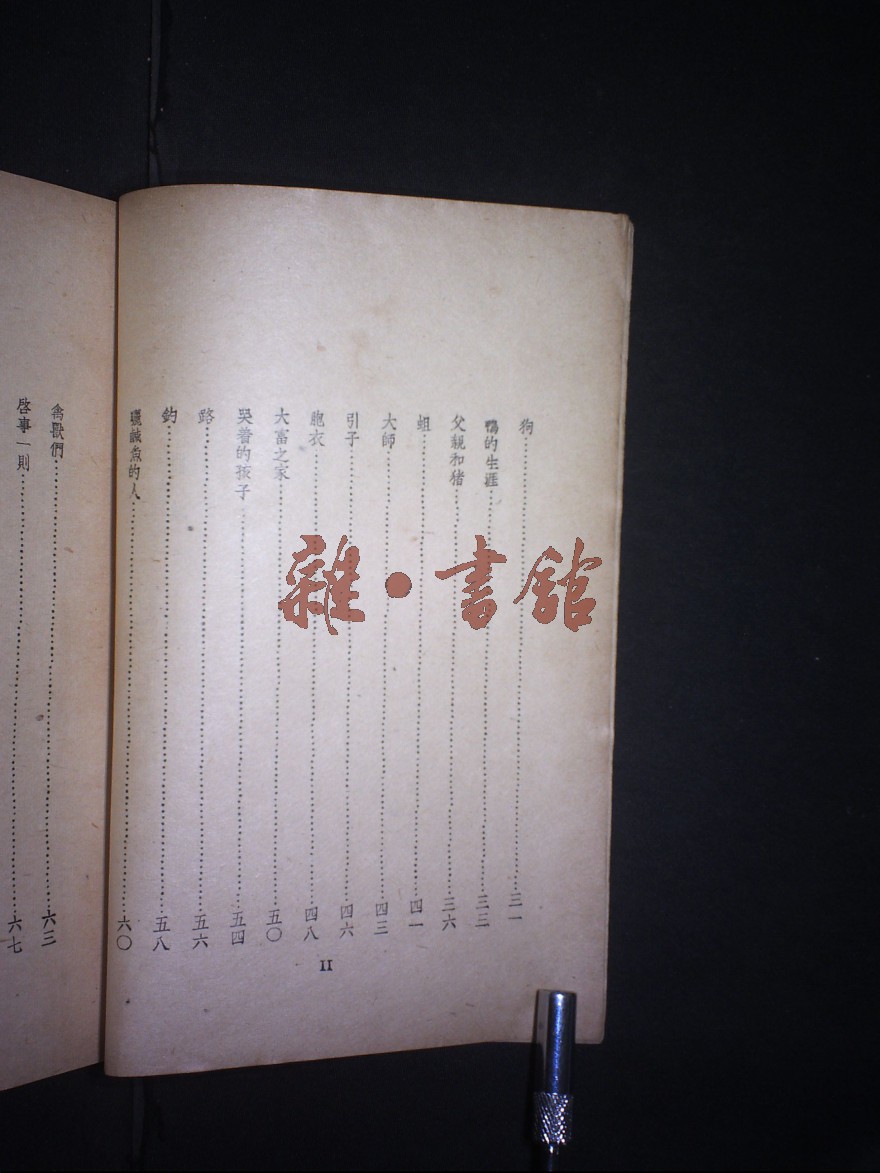 狗……三一
鴨的生涯……三三
父親和猪……三六
蛆……四一
大師……四三
引子……四六
胞衣……四八
大富之家……五〇
哭着的孩子……五四
路……五六
……五八
曬鹹魚的人……六〇
II
禽獸們……六三
啓事一則……六七
雜·書館